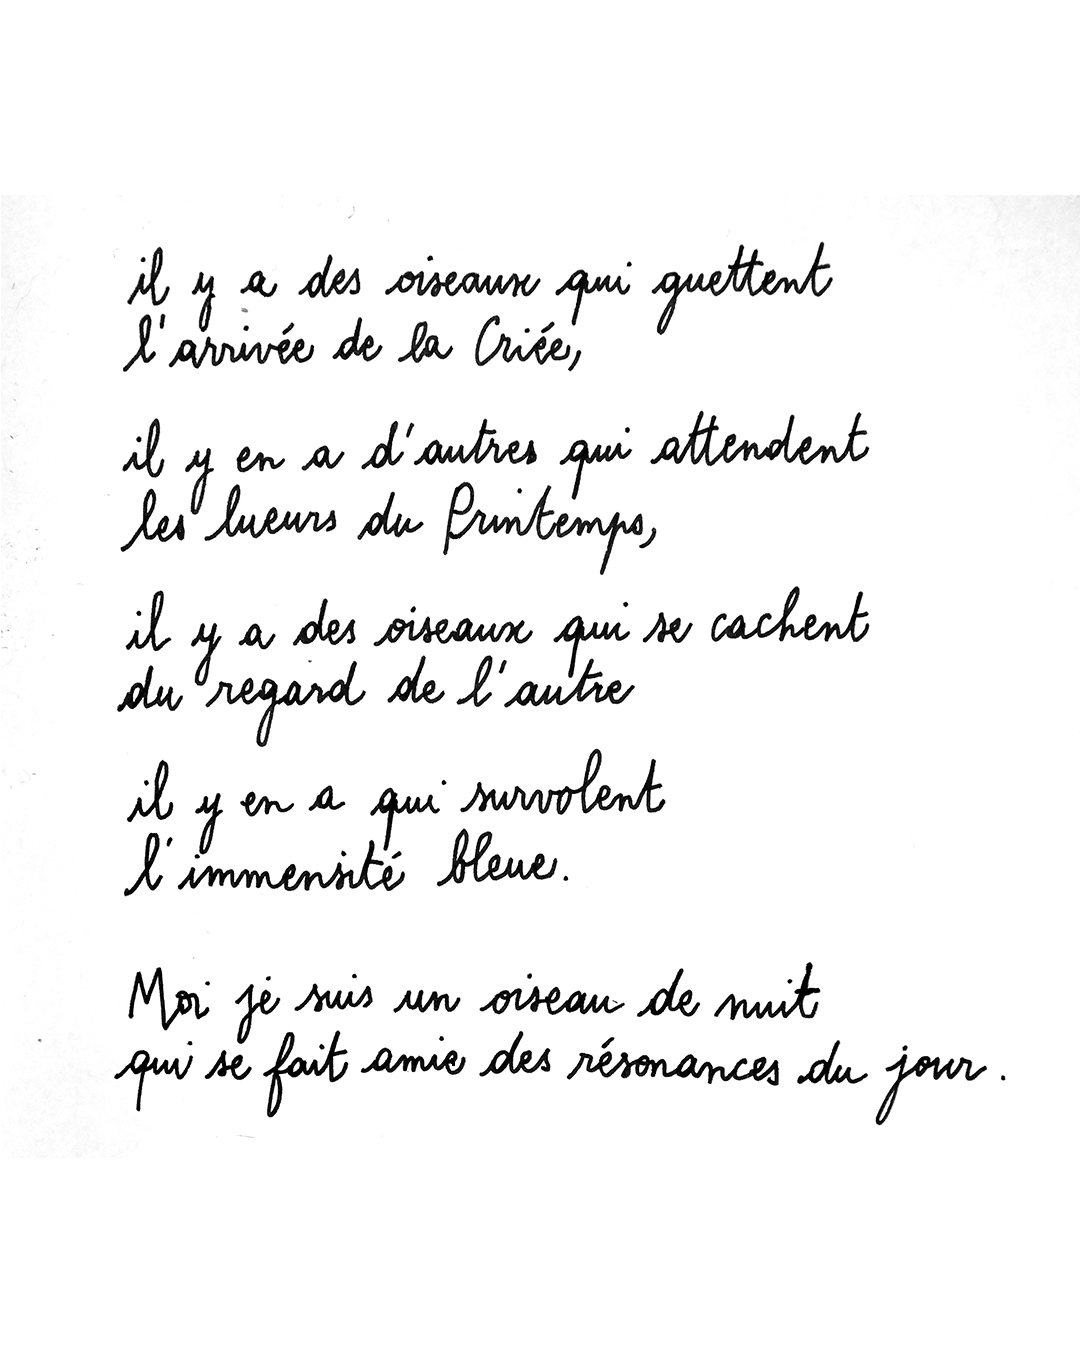 il y a des oiseaux qui guettent
l'arrivée de la Criée,
il y en a d'autres qui attendent
les lueurs du Printemps,
il y a des oiseaux qui se cachent
du regard de l'autre
il y en a qui survolent
l'immensité bleue.
Moi je suis un oiseau de nuit
qui se fait amie des résonances du jour.